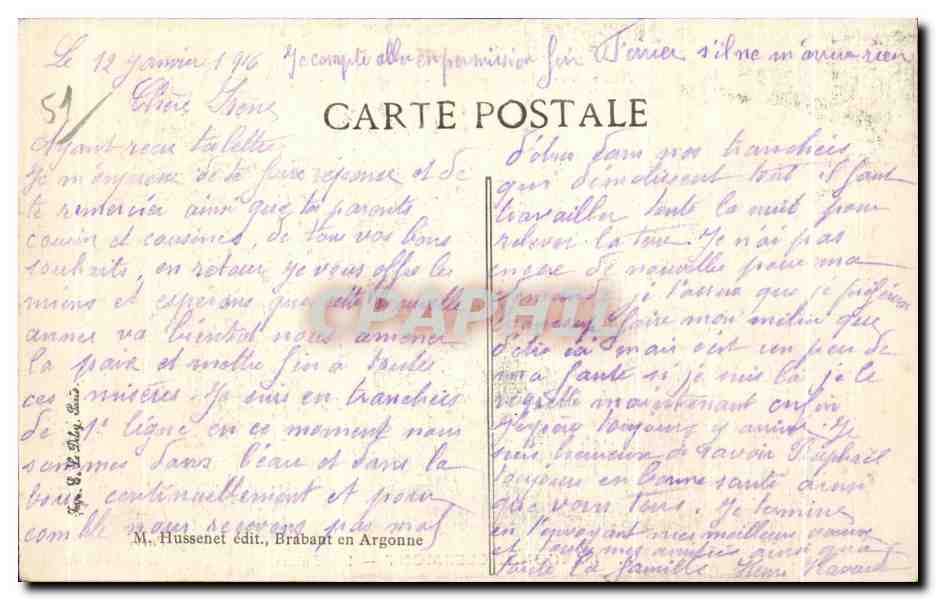 Le 12 Janvier 1916 Je compte aller en permission fin Février s'il ne m'arrive rien
51
Chère Irène
CARTE POSTALE
Ayant reçu ta lettre
Je m'empresse de te faire réponse et de
te remercier ainsi que tes parents
cousin et cousines, de tous vos bons
souhaits, en retour je vous offre les
miens et espérons que cette nouvelle
année va bientôt nous amener
la paix et mettre fin à toutes
ces misères. Je suis en tranchées
de 1e ligne en ce moment nous
sommes dans l'eau et dans la
boue continuellement et pour
comble nous recevons pas mal
d'obus dans nos tranchées
qui démolissent tout il faut
travailler toute la nuit pour
relever la terre. Je n'ai pas
encore de nouvelles pour ma
demande, je t'assure que je préférerai
faire mon métier que
d'être ici mais c'est un peu de
ma faute si je suis là je le
regrette maintenant enfin
j'espère toujours y arriver. Je
suis heureux de savoir Raphaël
toujours en bonne santé ainsi
que vous tous. Je termine
en t'envoyant mes meilleurs vœux
et toutes mes amitiés ainsi qu'à
toute la famille Henri
CPAPHIL
Imp. E. Le Deley, Paris
M. Hussenet édit., Brabant en Argonne